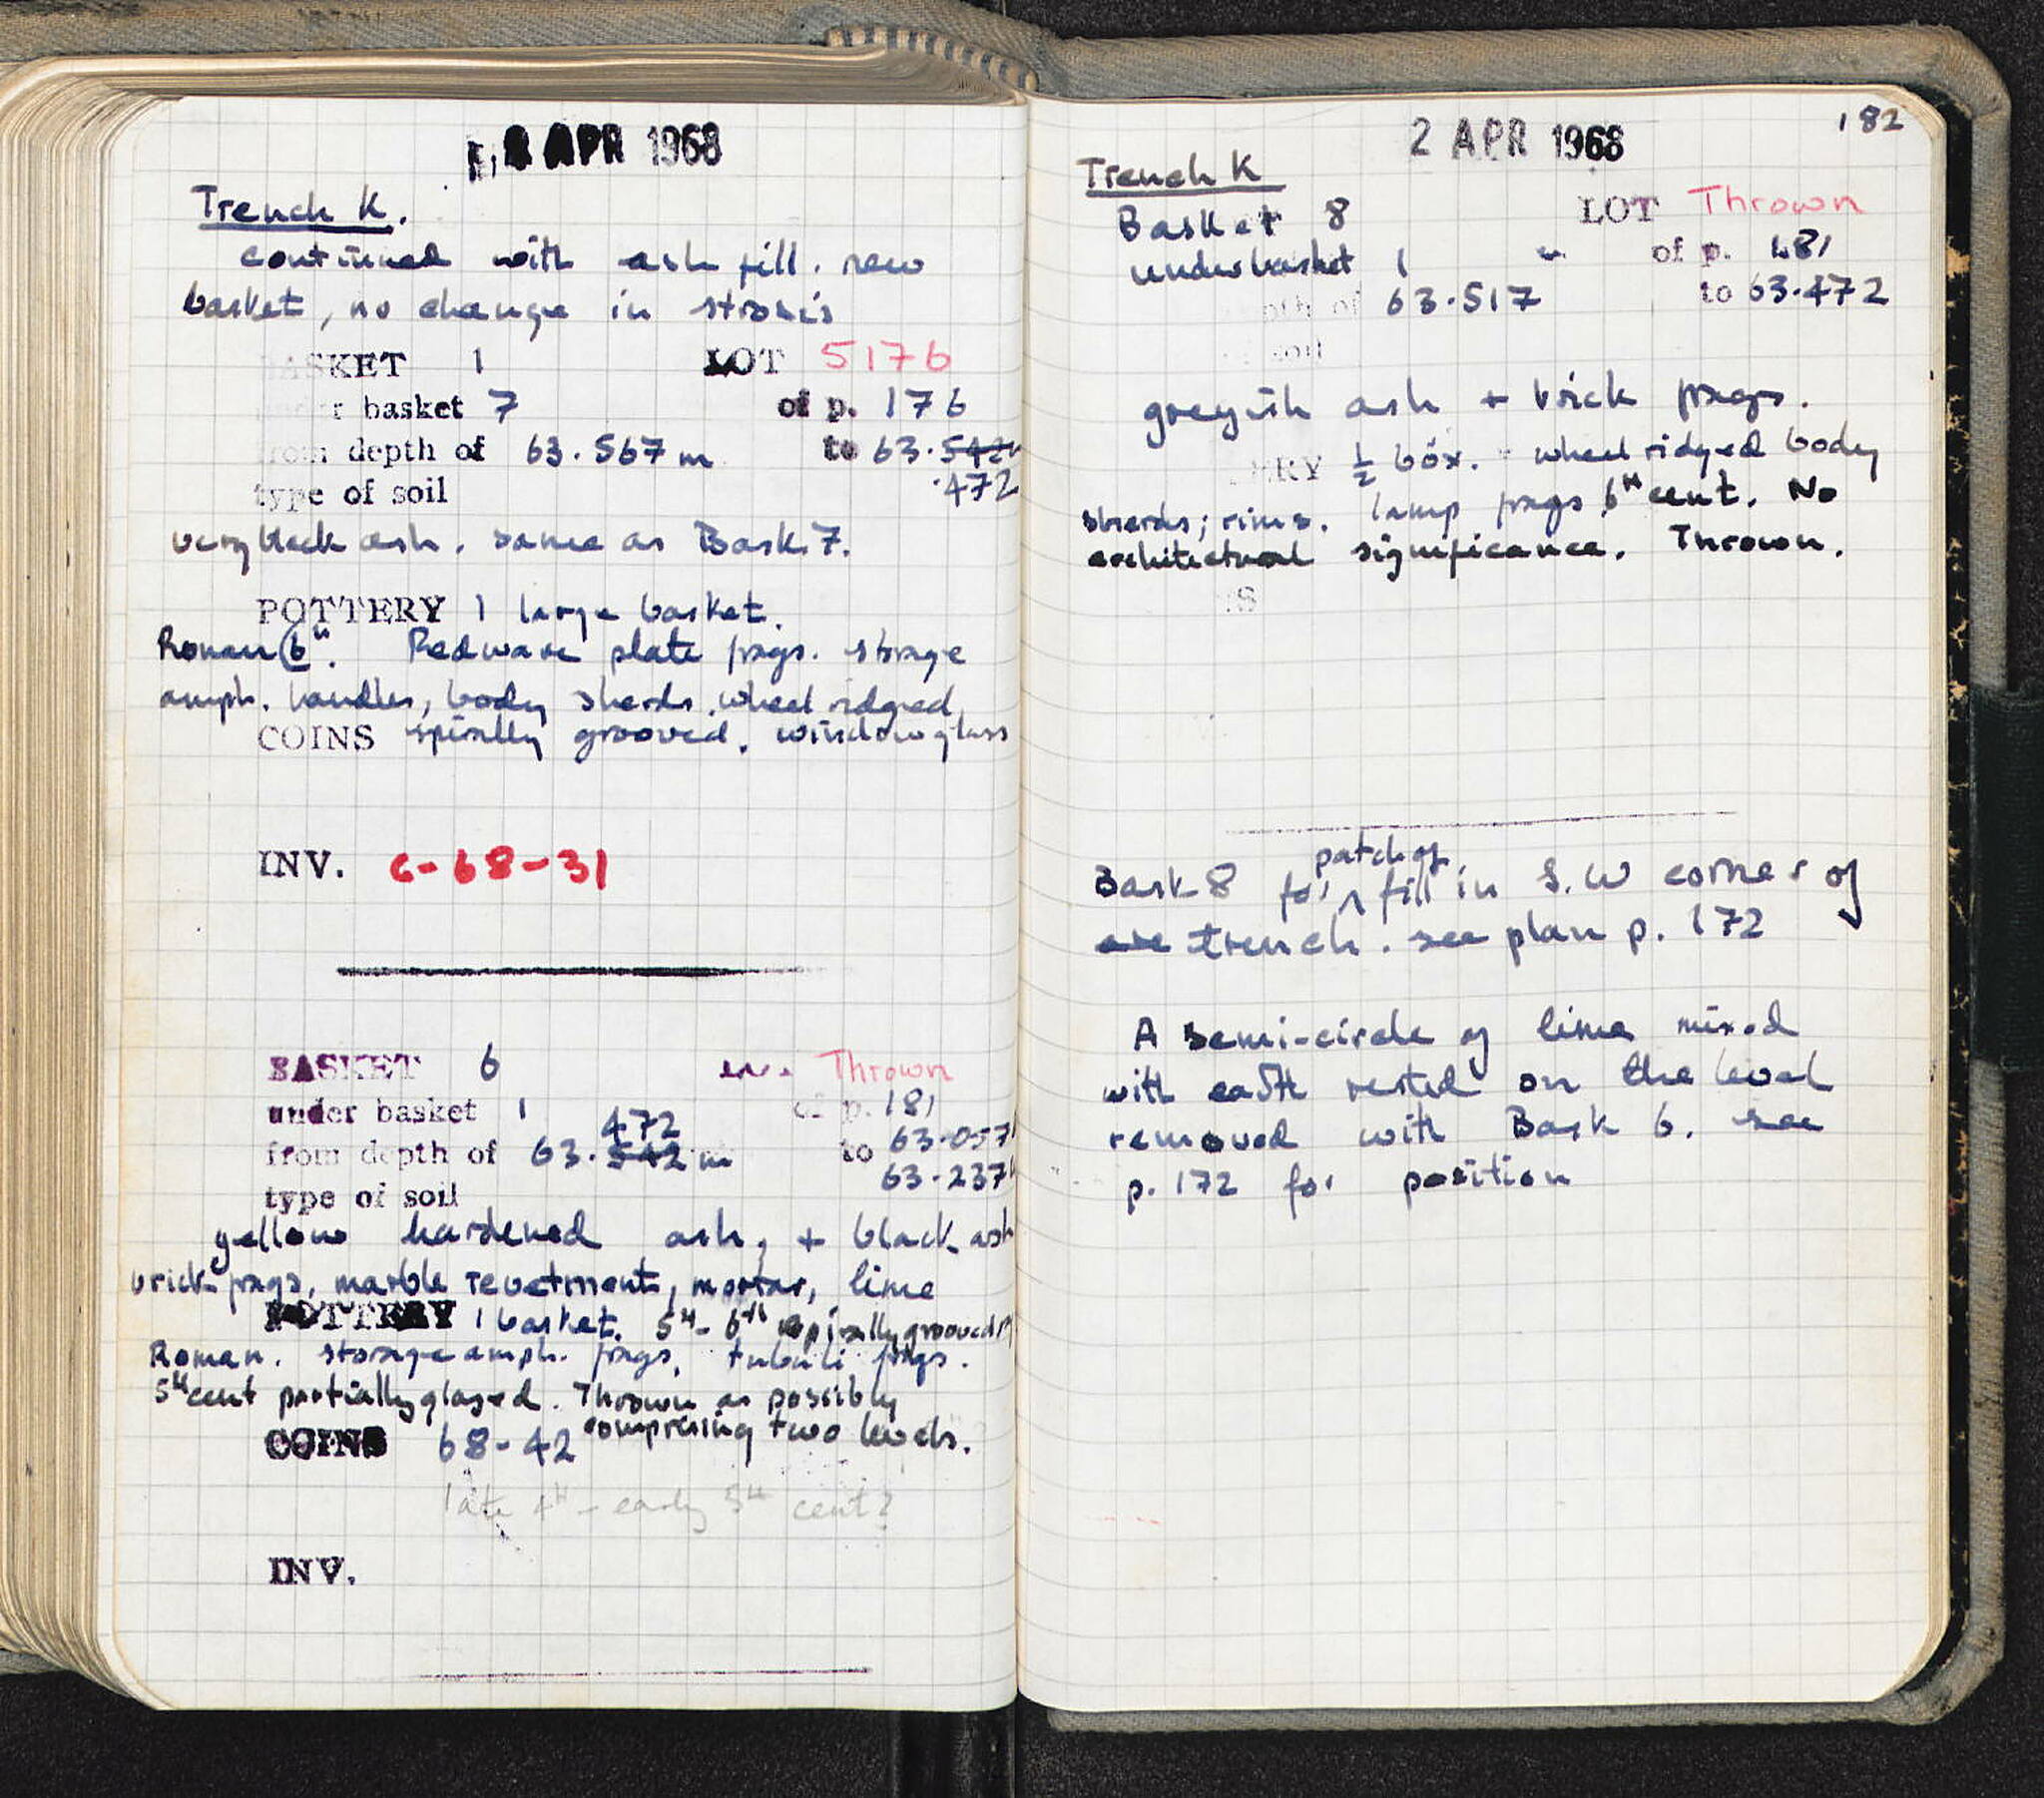 APR 1968
Trench K.
continued with ash fill. new
basket, no change in stroxis
BASKET 1 LOT 5176
under basket 7 of p. 176
from depth of 63.567 m to 63.542
.472
type of soil
very black ash. same as Bask. 7.
POTTERY 1 large basket.
Roman 6th. Redware plate frags. storage
amph. handles, body sherds, wheel ridged,
COINS spirally grooved. window glass
INV. C-68-31
BASKET 6 Thrown
under basket 1 of p. 181
472
from depth of 63.542 m to 63.057
63.237
type of soil
yellow hardened ash, + black ash
brick frags, marble revetment, mortar, lime
POTTERY 1 basket. 5th - 6th spirally grooved
Roman. storage amph. frags, tubuli frags.
5th cent partially glazed. Thrown as possibly
comprising two levels.
COINS 68-42
late 4th - early 5th cent?
INV.
2 APR 1968 182
Trench K
Basket 8 LOT Thrown
under basket 1 of p. 181
depth of 63.517 to 63.472
soil
greyish ash + brick frags.
POTTERY 1/2 box. wheel ridged body
sherds; rims. lamp frags 6th cent. No
architectural significance. Thrown.
NS
patch of
Bask 8 for ^ fill in S.W corner of
are trench. see plan p. 172
A semi-circle of lime mixed
with earth rested on the level
removed with Bask 6. see
p. 172 for position